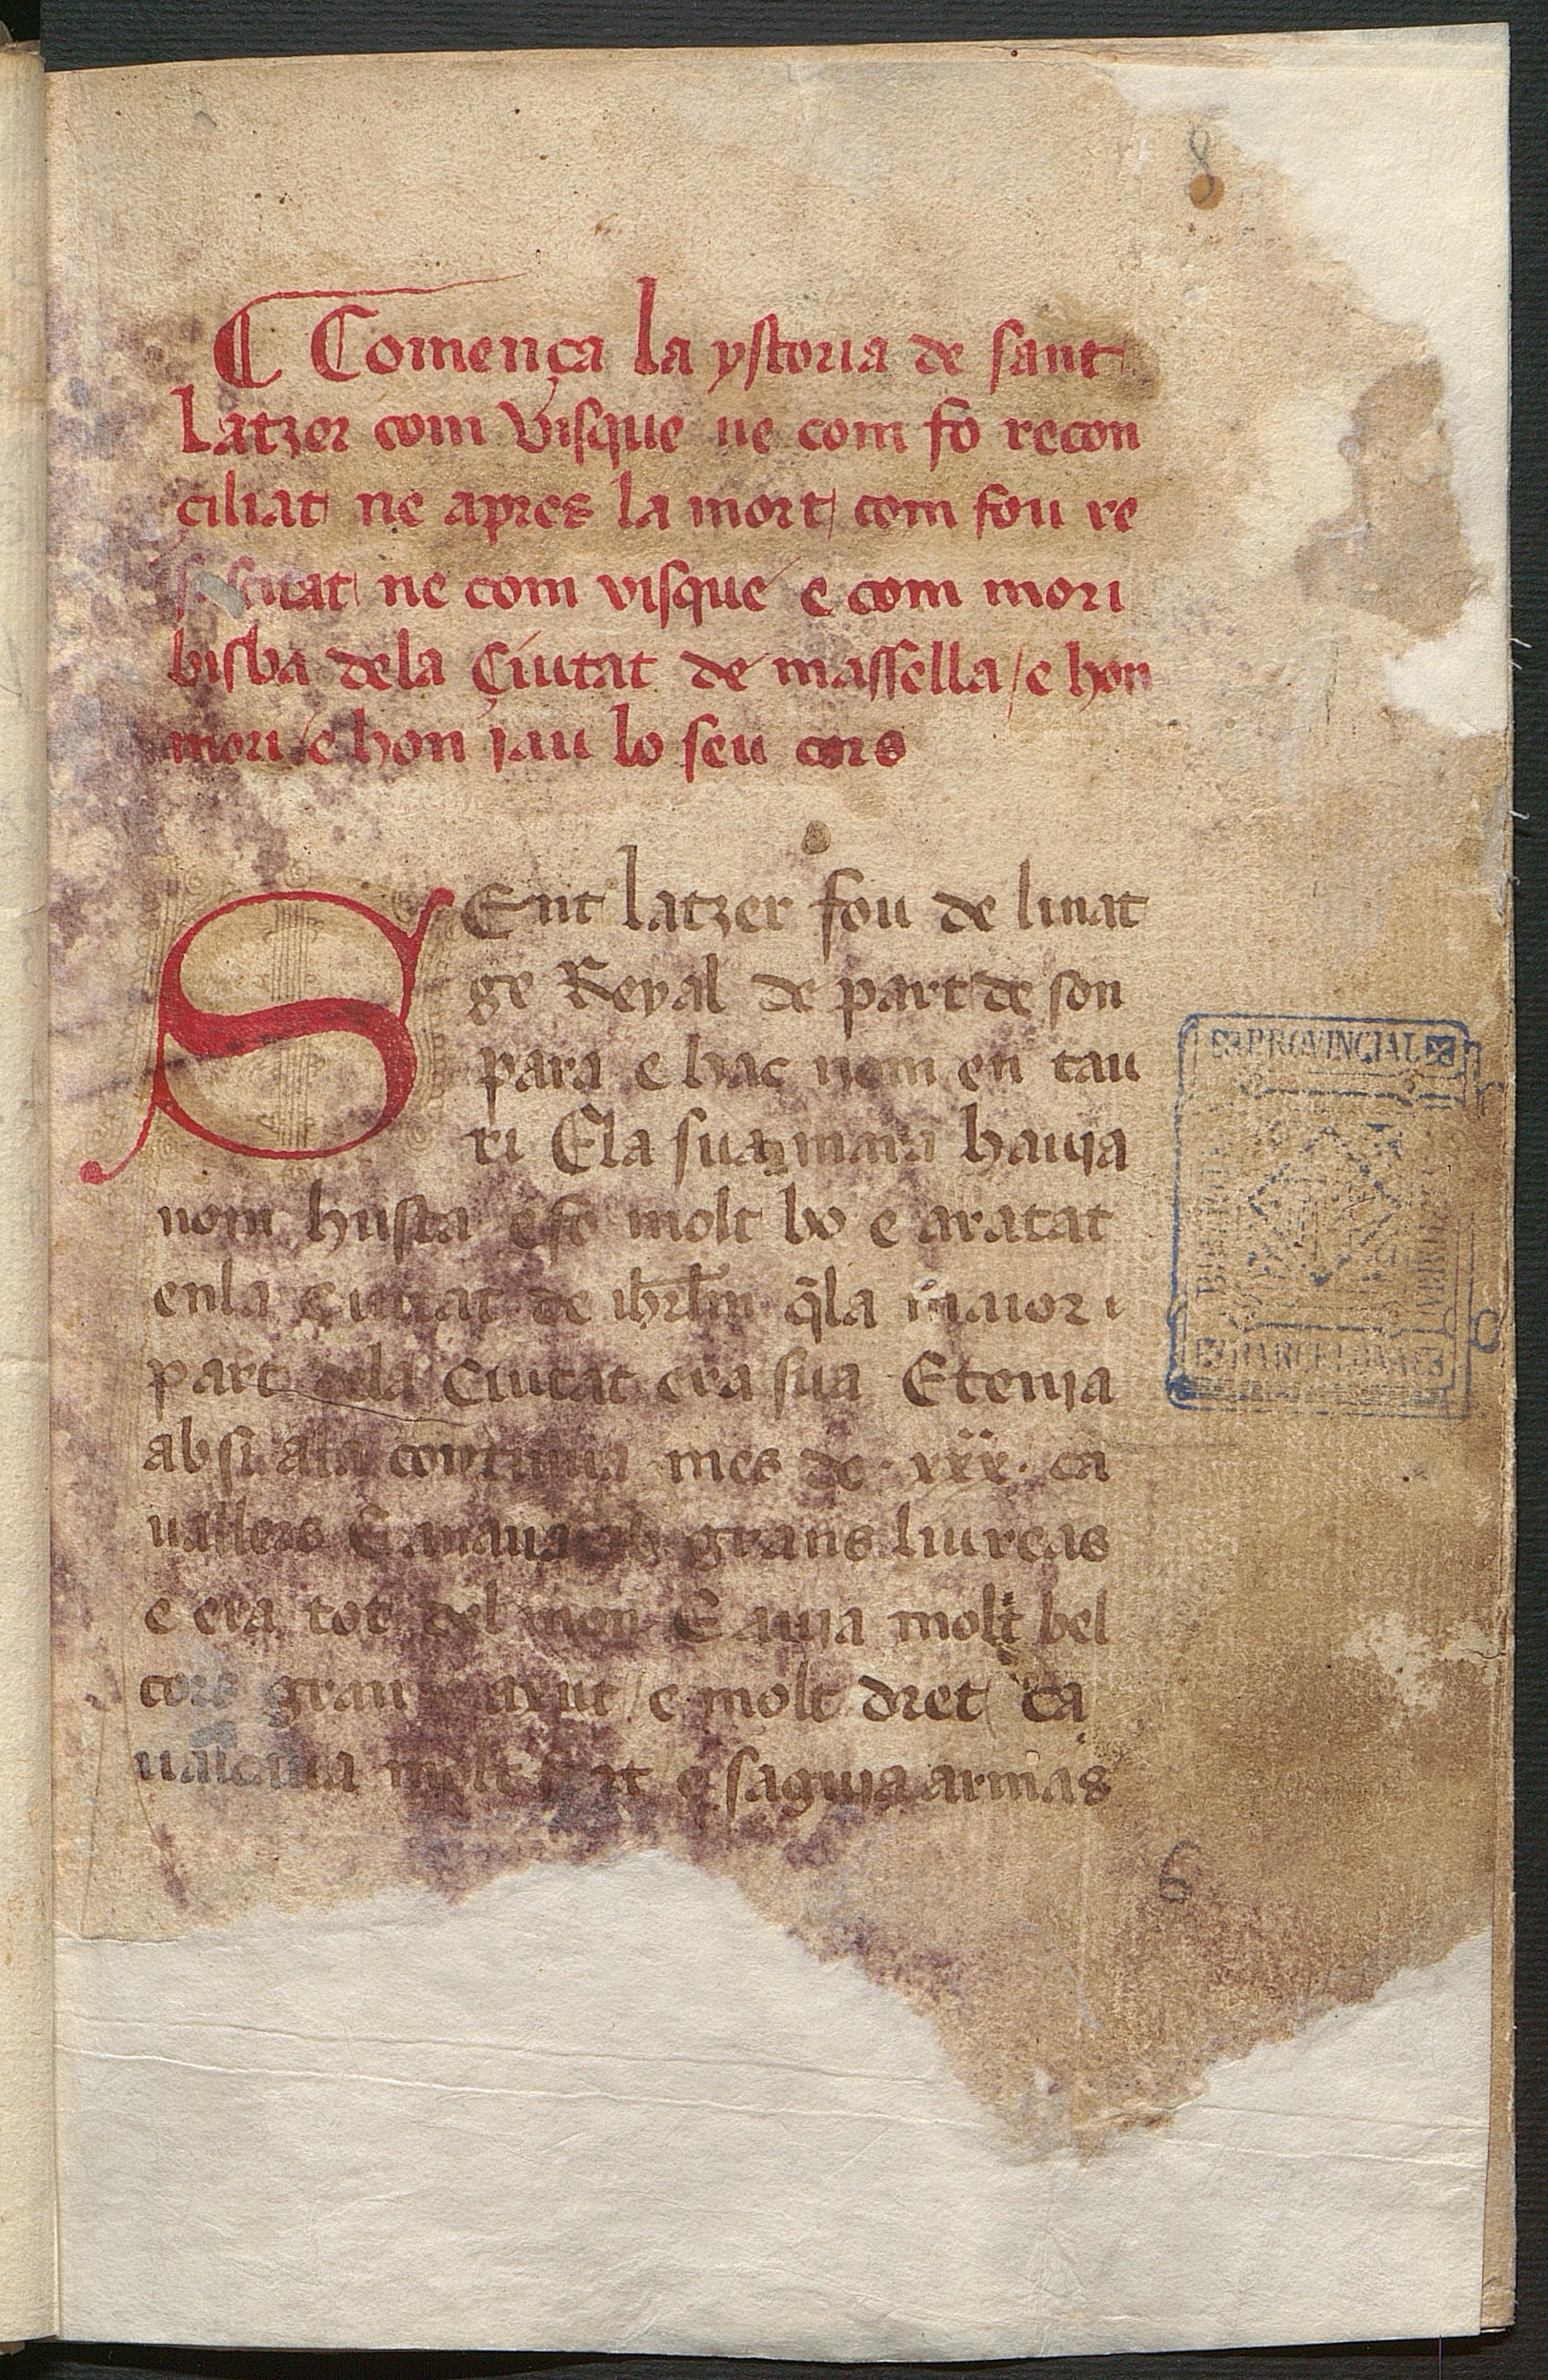 8
Comença la ystoria de sant
Latzer com visque ne com fo recon
çiliat ne apres la mort com fou re
suscitat ne com visque e com mori
bisba dela Çiutat de massella / e hon
mori / e hon jau lo seu cors
SEnt latzer fou de linat
ge Reyal de part de son
para e hac nom en tau
ri E la sua mara hauia
nom husta e fo molt bo e aratat
en la Ciutat de ihrl̄m q̄ la maior
part dela Ciutat era sua E tenia
ab si ala continua mes de · xxx · ca
uallers E anaua ab grans liureas
e era tot del mon E auia molt bel
cors gran e axut / e molt dret Ca
ualcaua molt fort e saguia armas
6
PROVINCIAL
BARCELONA